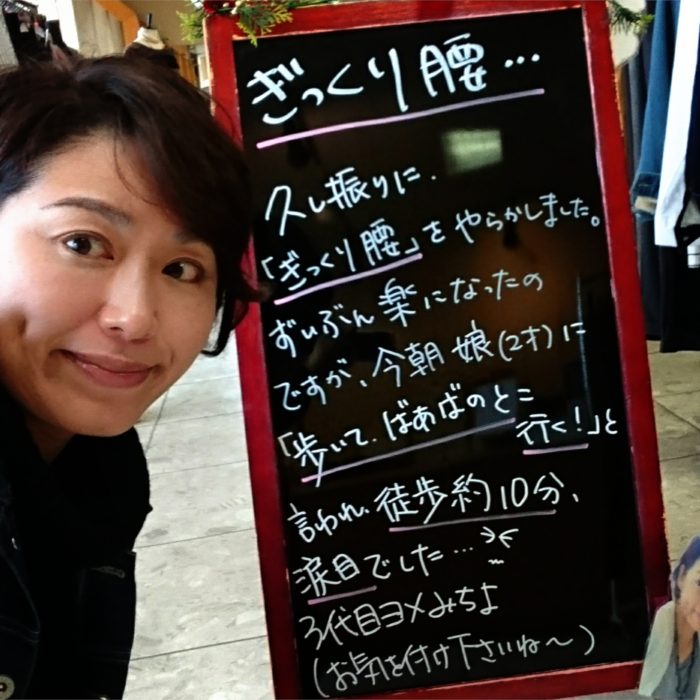 ぎっくり腰…
久し振りに、
「ぎっくり腰」をやらかしました。
ずいぶん楽になったの
ですが、今朝娘(2才)に
「歩いて、ばあばのとこ
行く!」と
言われ、徒歩約10分、
涙目でした…
3代目ヨメみちよ
(お気を付け下さいね〜)